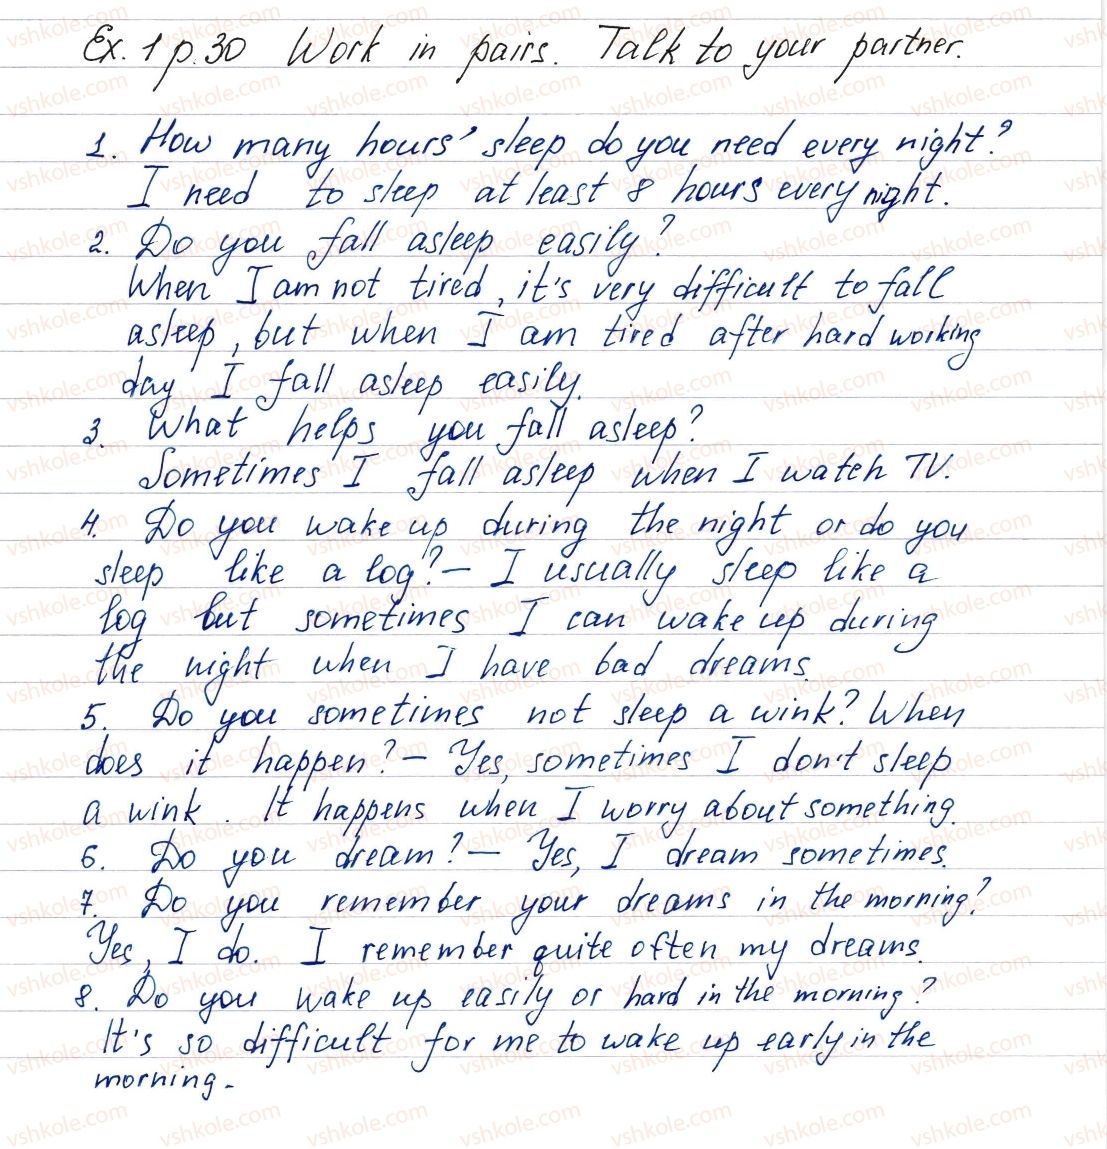 Ex. 1 p. 30 Work in pairs. Talk to your partner.
1. How many hours' sleep do you need every night?
I need to sleep at least 8 hours every night.
2. Do you fall asleep easily?
When I am not tired, it's very difficult to fall
asleep, but when I am tired after hard working
day I fall asleep easily.
3. What helps you fall asleep?
Sometimes I fall asleep when I watch TV.
4. Do you wake up during the night or do you
sleep like a log? – I usually sleep like a
log but sometimes I can wake up during
the night when I have bad dreams.
5. Do you sometimes not sleep a wink? When
does it happen? – Yes, sometimes I don't sleep
a wink. It happens when I worry about something.
6. Do you dream? – Yes, I dream sometimes.
7. Do you remember your dreams in the morning?
Yes, I do. I remember quite often my dreams.
8. Do you wake up easily or hard in the morning?
It's so difficult for me to wake up early in the
morning.